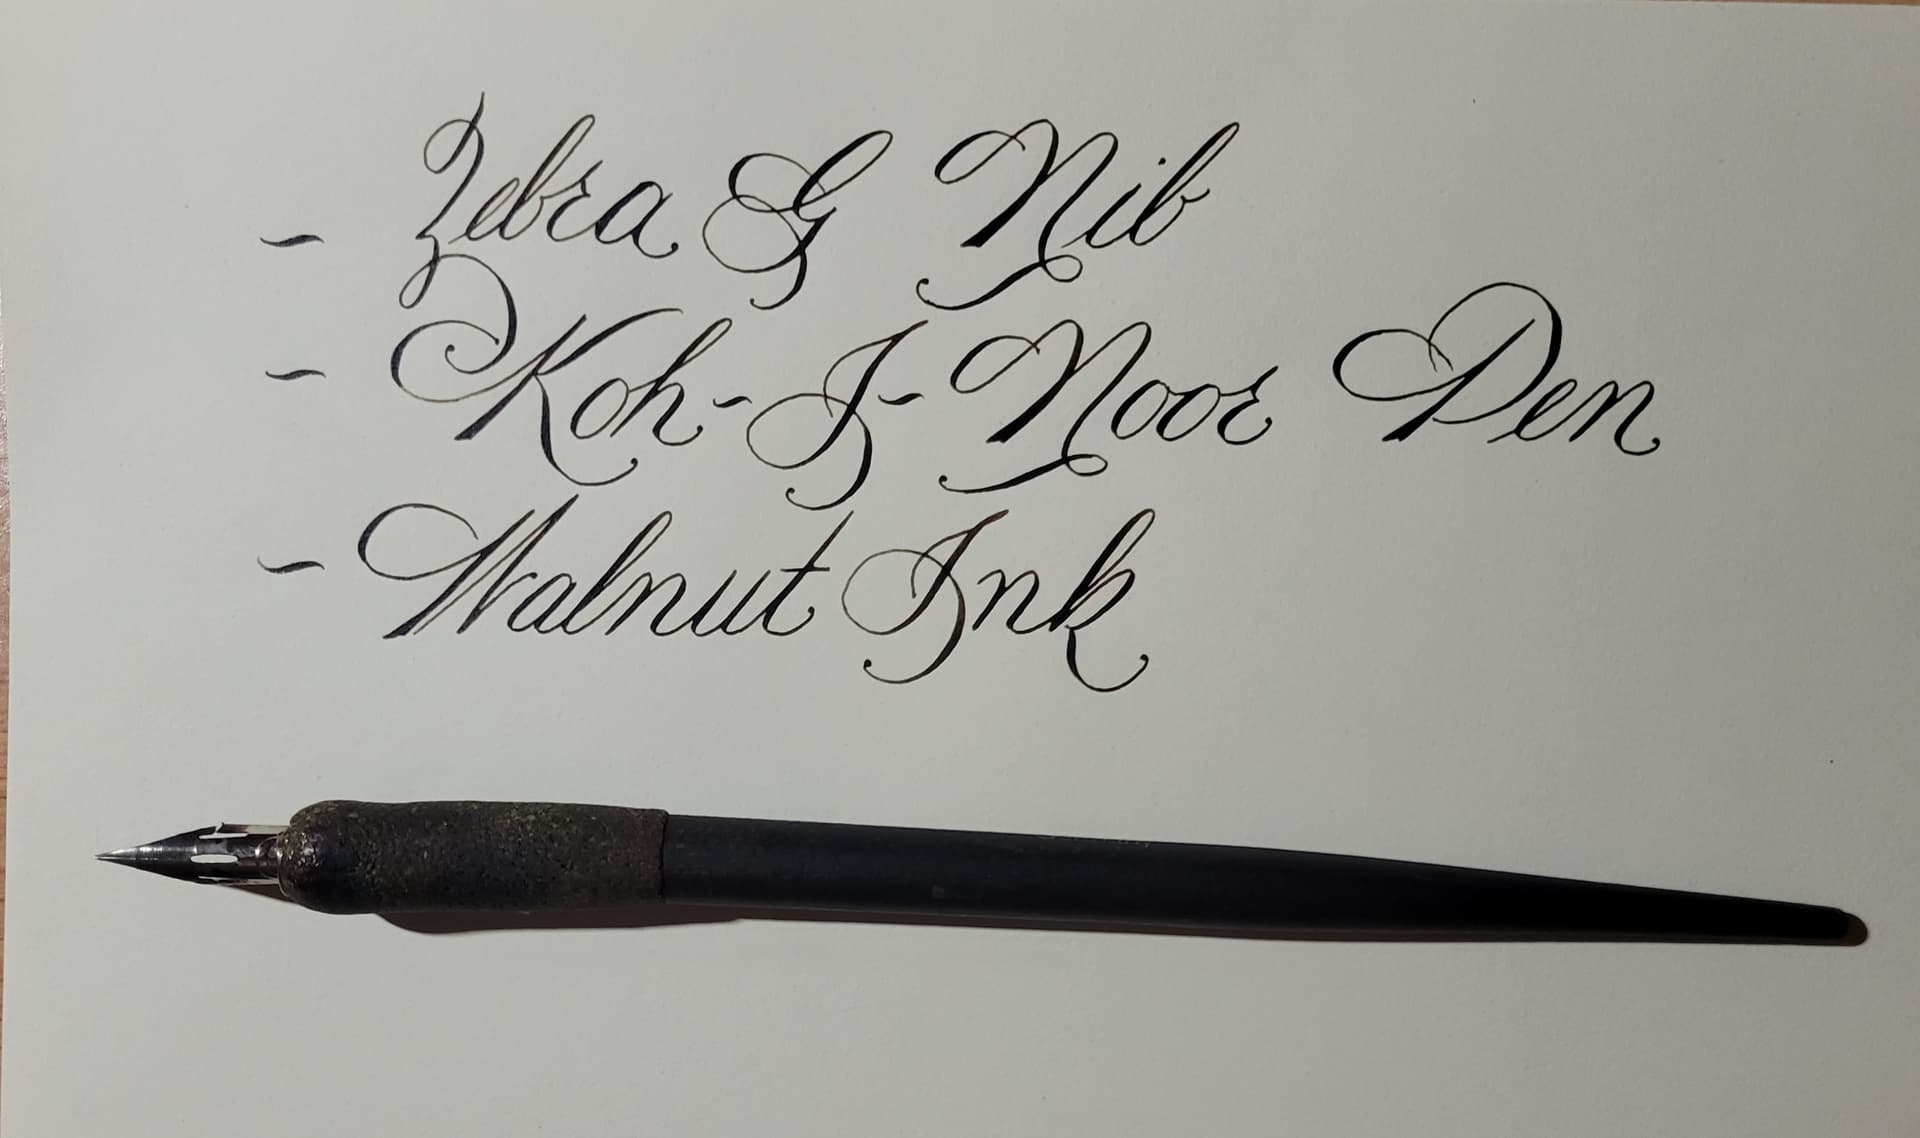 - Zebra G Nib
- Koh-I-Noor Pen
- Walnut Ink